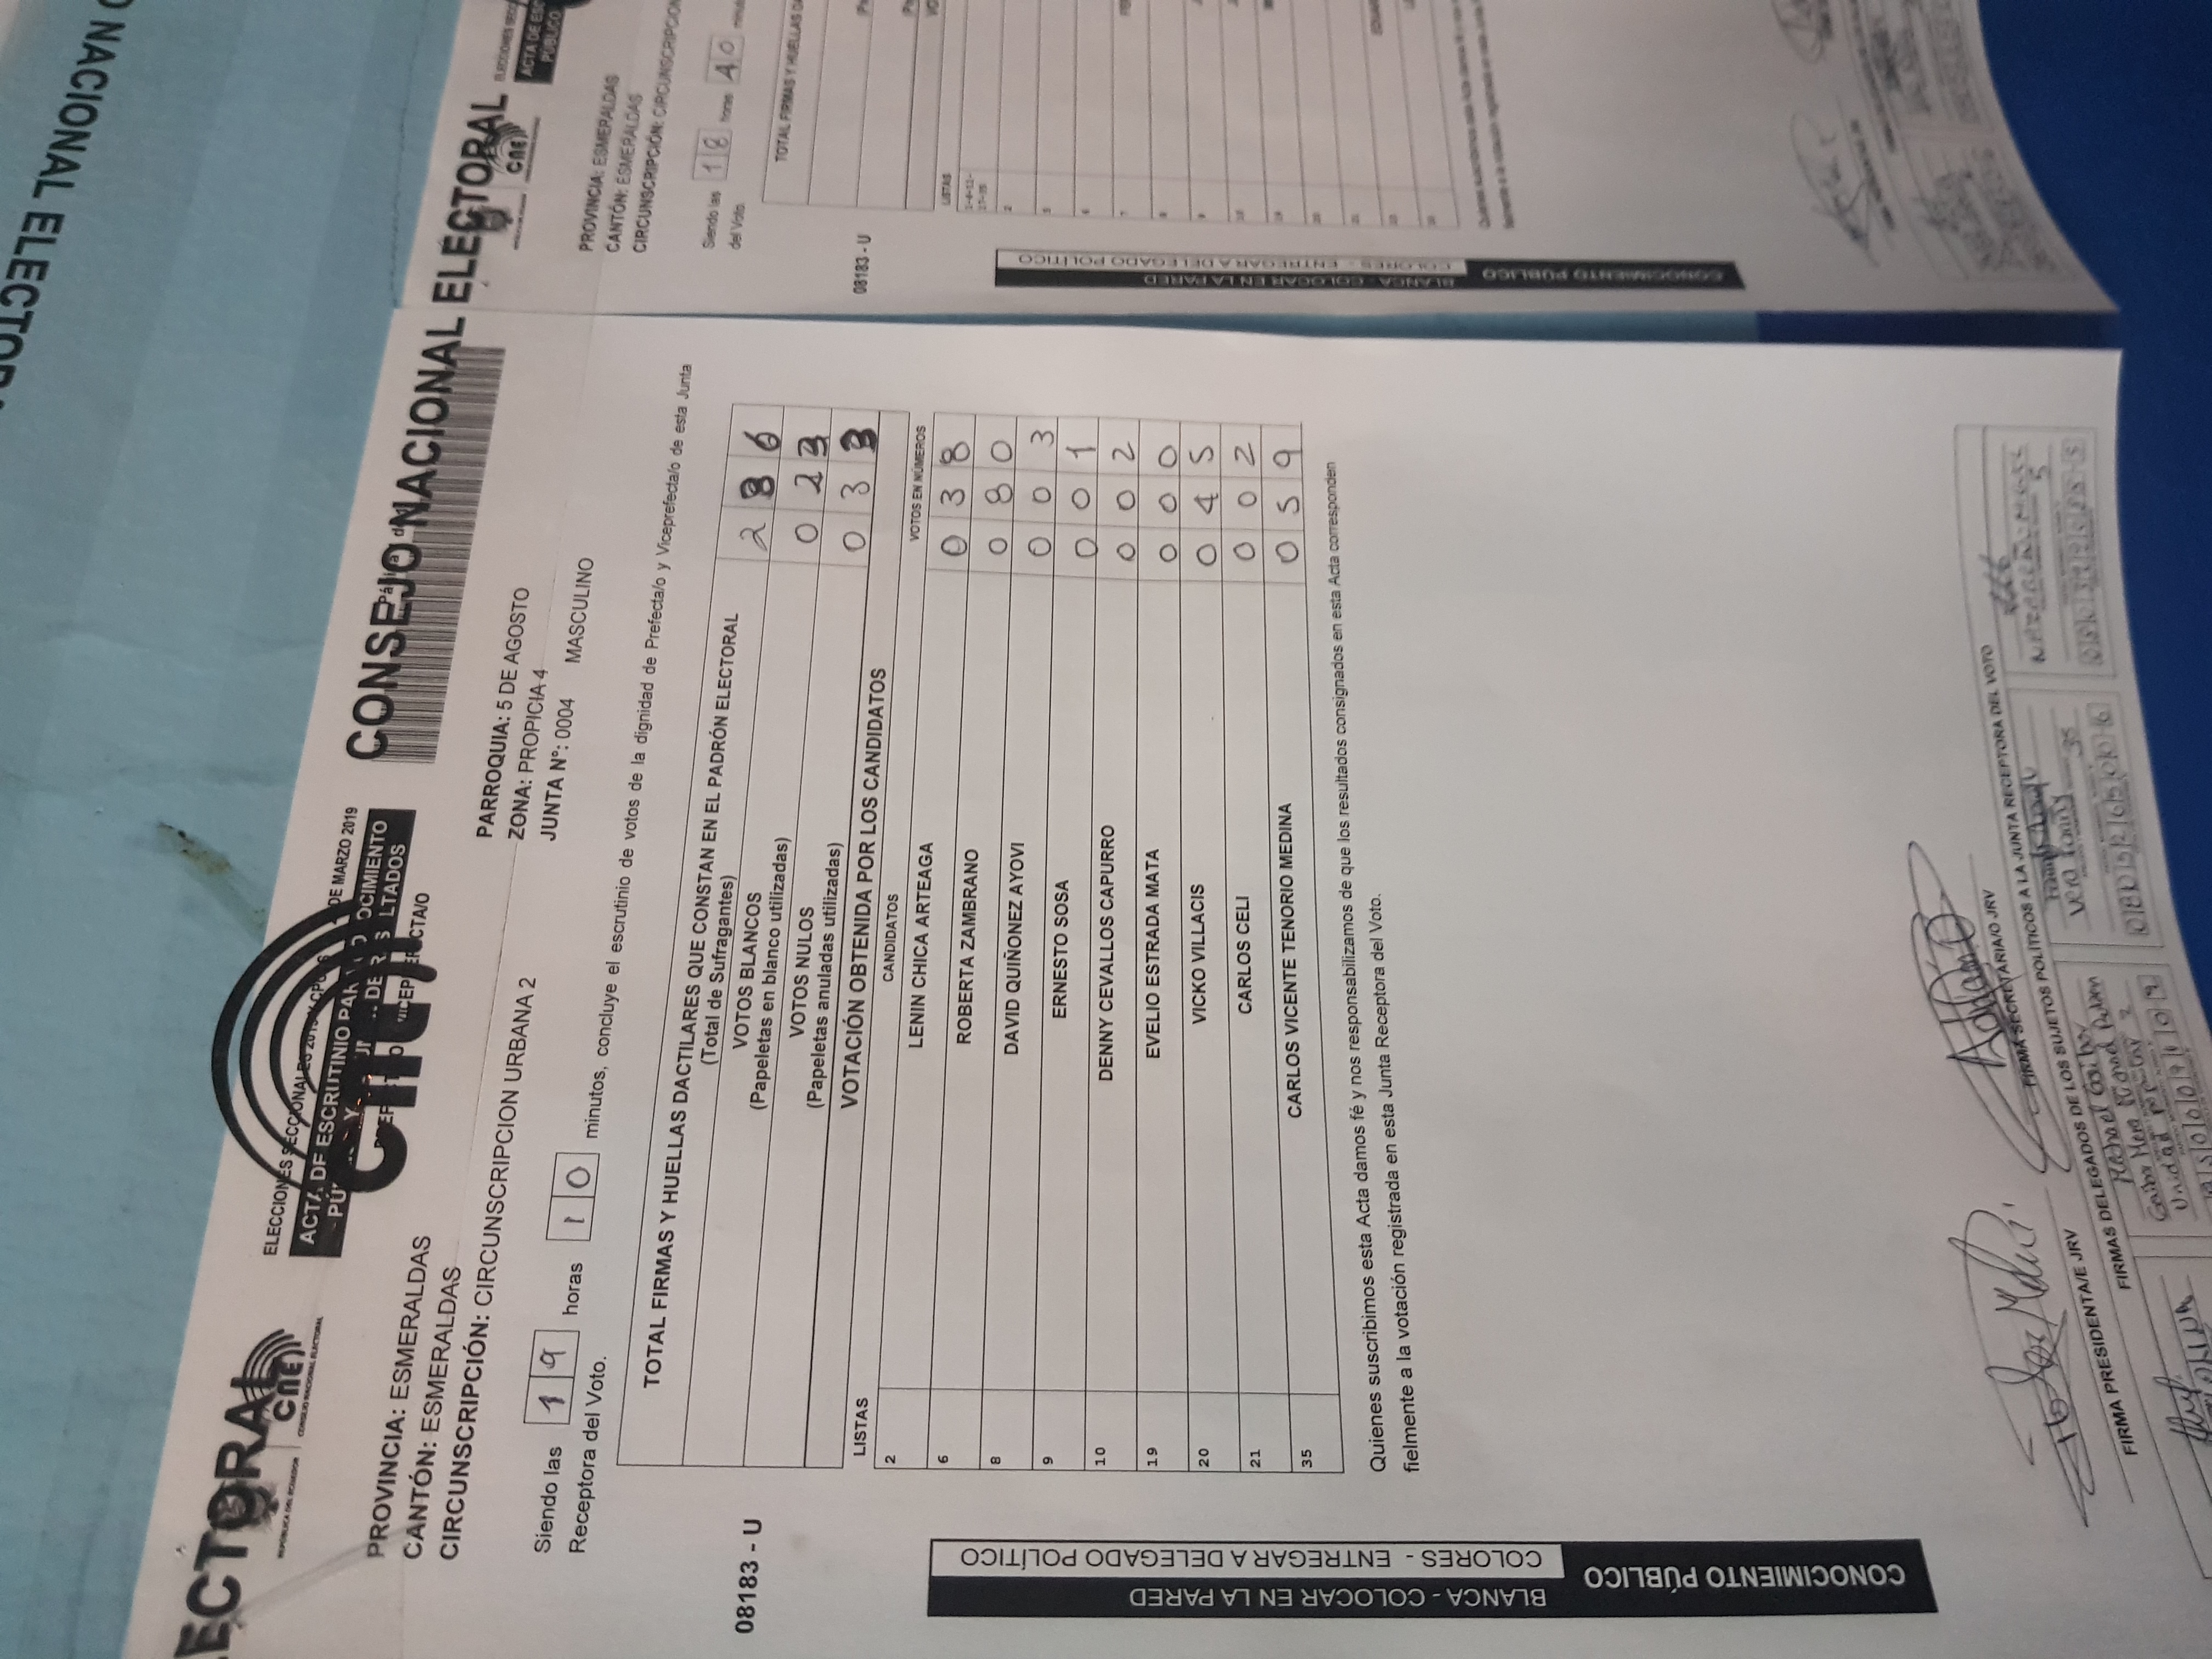 NACIONAL ELECTOR
ECTORAL
REPÚBLICA DEL ECUADOR
CNE
CONSEJO NACIONAL ELECTORAL
ELECCIONES SECCIONALES 2019 Y CPCCS DE MARZO 2019
ACTA DE ESCRUTINIO PARA CONOCIMIENTO
PÚBLICO Y DE RESULTADOS
PREFECTA/O Y VICEPREFECTA/O
cne
CONSEJO NACIONAL ELECTORAL
PROVINCIA: ESMERALDAS
CANTÓN: ESMERALDAS
CIRCUNSCRIPCIÓN: CIRCUNSCRIPCION URBANA 2
PARROQUIA: 5 DE AGOSTO
ZONA: PROPICIA 4
JUNTA N°: 0004 MASCULINO
Siendo las 19 horas 10 minutos, concluye el escrutinio de votos de la dignidad de Prefecta/o y Viceprefecta/o de esta Junta
Receptora del Voto.
TOTAL FIRMAS Y HUELLAS DACTILARES QUE CONSTAN EN EL PADRÓN ELECTORAL
(Total de Sufragantes) 286
VOTOS BLANCOS
(Papeletas en blanco utilizadas) 023
VOTOS NULOS
(Papeletas anuladas utilizadas) 033
VOTACIÓN OBTENIDA POR LOS CANDIDATOS
LISTAS CANDIDATOS VOTOS EN NÚMEROS
2 LENIN CHICA ARTEAGA 038
6 ROBERTA ZAMBRANO 080
8 DAVID QUIÑONEZ AYOVI 003
9 ERNESTO SOSA 001
10 DENNY CEVALLOS CAPURRO 002
19 EVELIO ESTRADA MATA 000
20 VICKO VILLACIS 045
21 CARLOS CELI 002
35 CARLOS VICENTE TENORIO MEDINA 059
Quienes suscribimos esta Acta damos fé y nos responsabilizamos de que los resultados consignados en esta Acta corresponden
fielmente a la votación registrada en esta Junta Receptora del Voto.
08183 - U
CONOCIMIENTO PÚBLICO
BLANCA - COLOCAR EN LA PARED
COLORES - ENTREGAR A DELEGADO POLÍTICO
FIRMA PRESIDENTA/E JRV
FIRMA SECRETARIA/O JRV
FIRMAS DELEGADOS DE LOS SUJETOS POLÍTICOS A LA JUNTA RECEPTORA DEL VOTO
Michael Gaibor
Gaibor Mera Michael Ruben
Unidad popular 2
Vera Fanny
35
5
CNE
ACTA DE ESC
PÚBLICO
PROVINCIA: ESMERALDAS
CANTÓN: ESMERALDAS
CIRCUNSCRIPCIÓN: CIRCUNSCRIPCION
Siendo las 18 horas 40 minu
del Voto.
TOTAL FIRMAS Y HUELLAS DA
08183 - U
LISTAS
CONOCIMIENTO PÚBLICO
BLANCA - COLOCAR EN LA PARED
COLORES - ENTREGAR A DELEGADO POLÍTICO